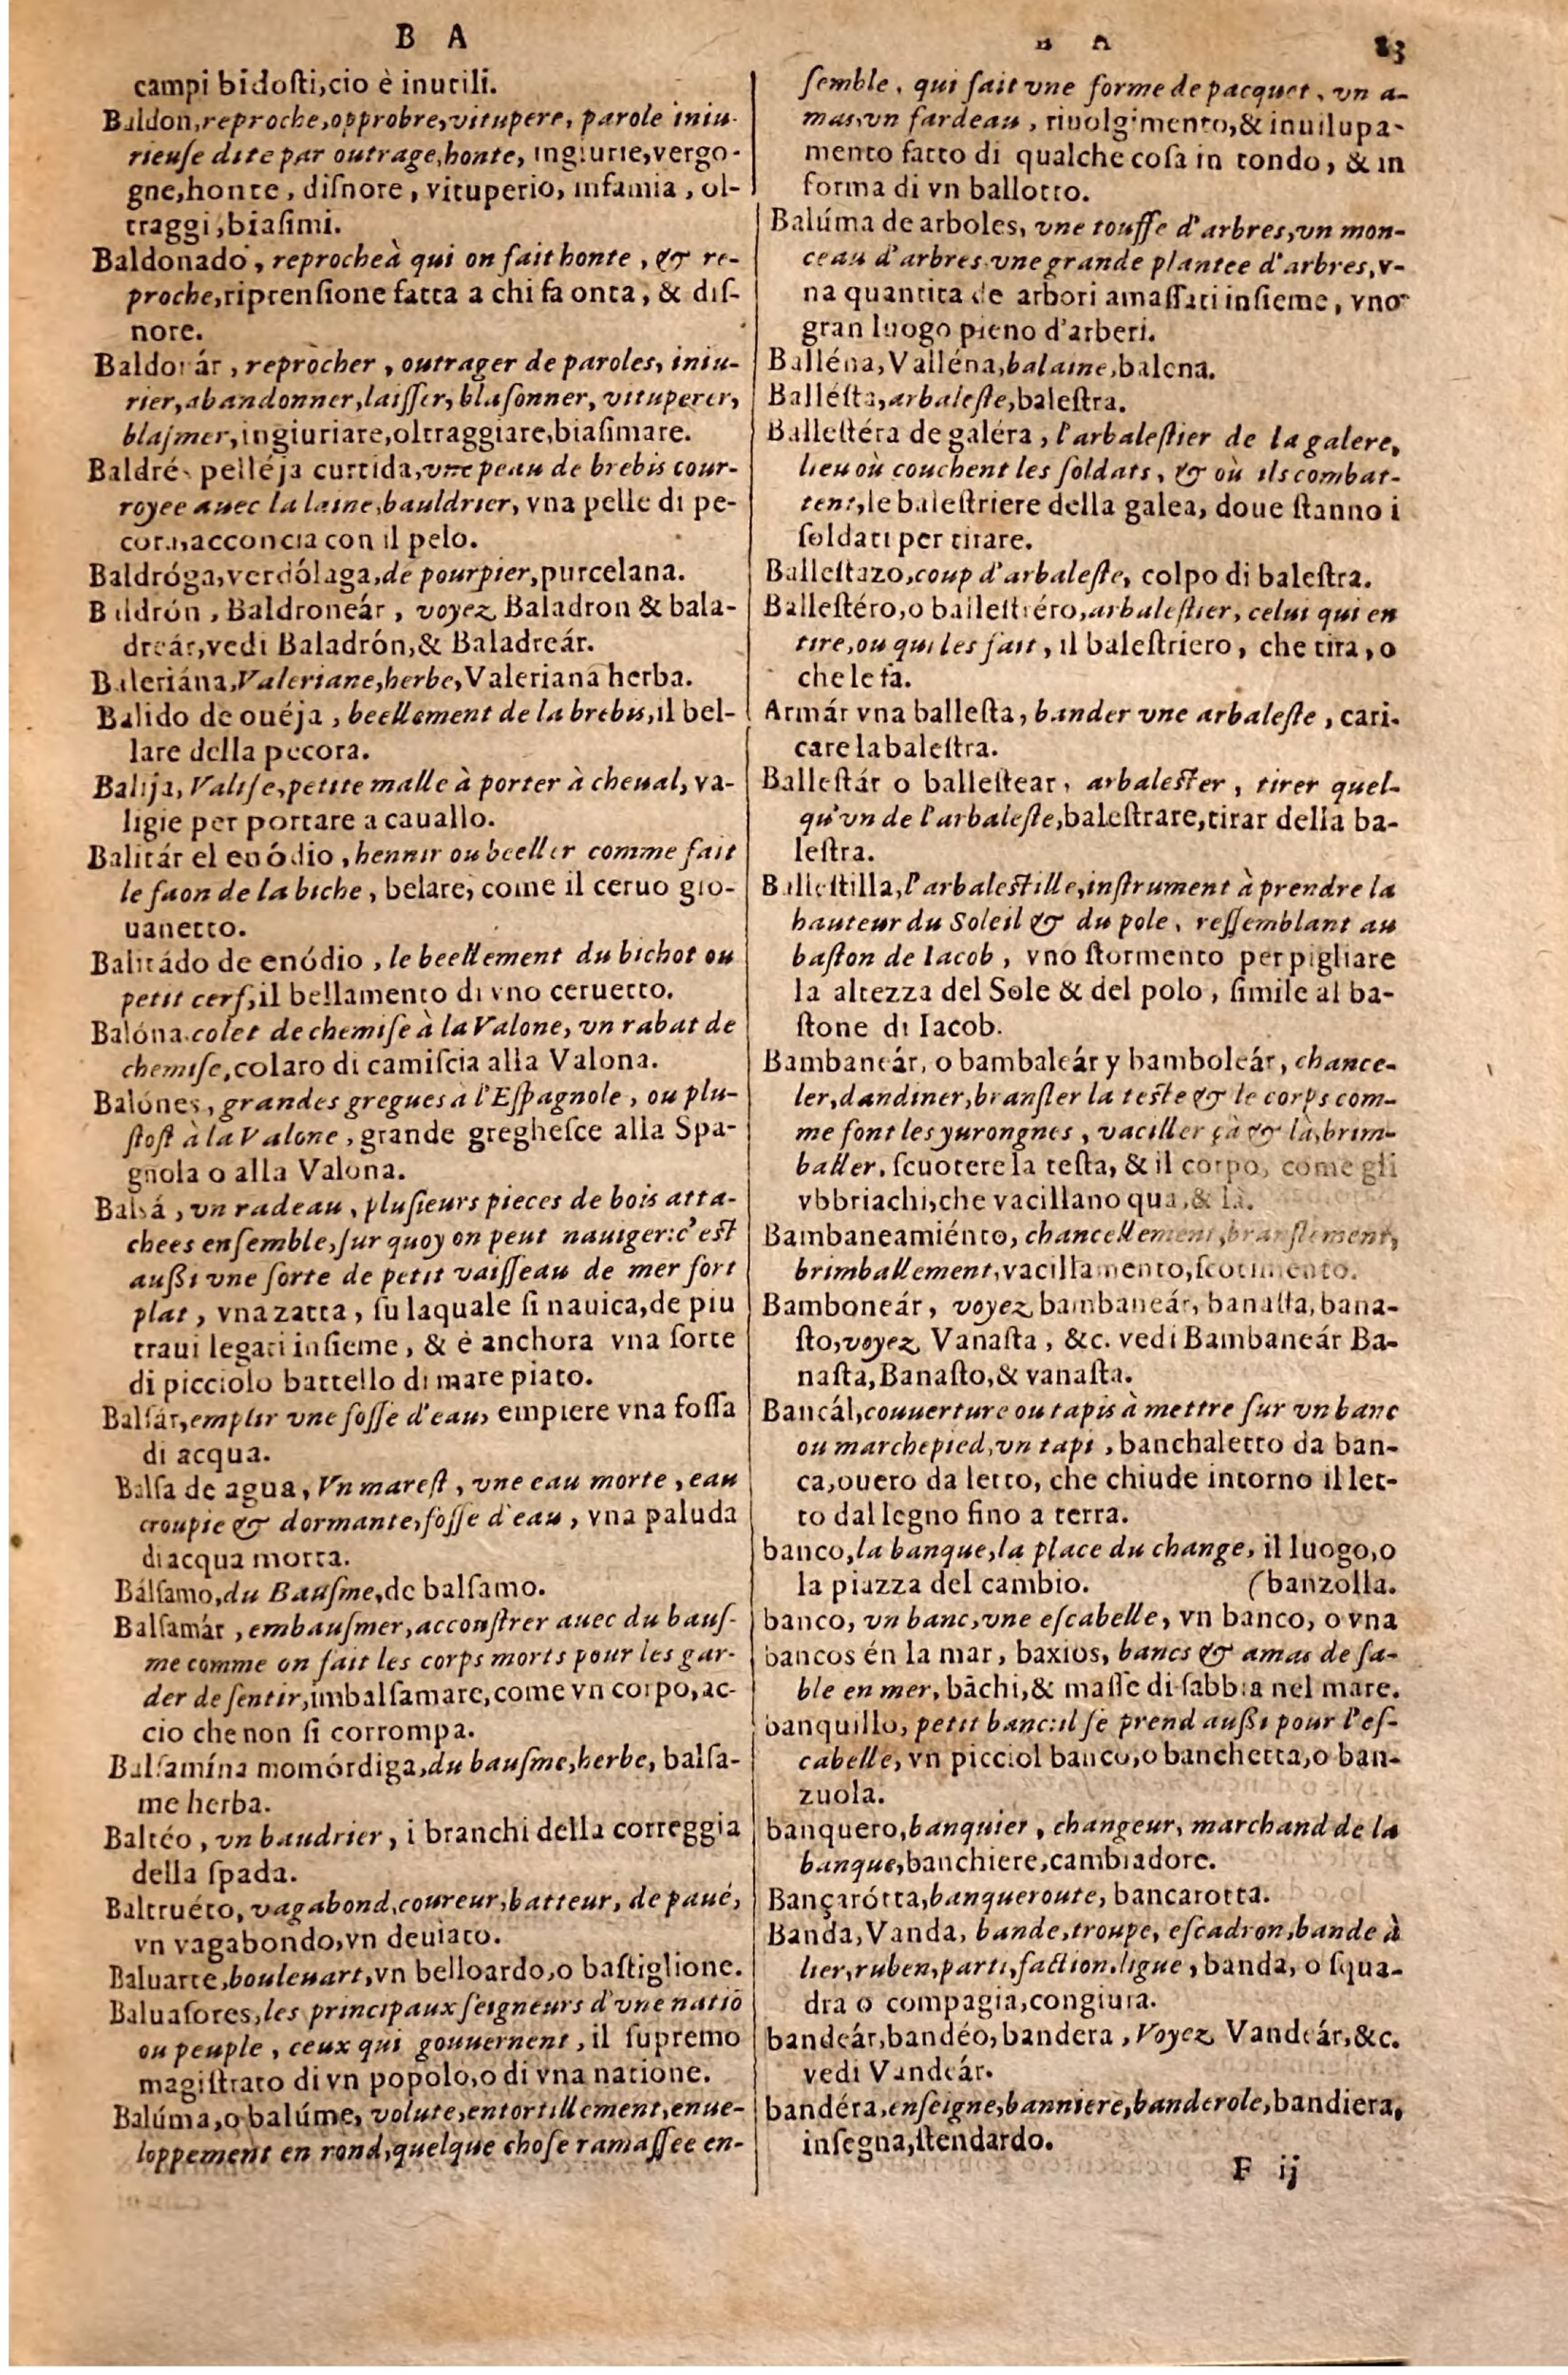 B A
campi bidoſti,cio è inutili.
Baldon,reproche,opprobre,vitupere, parole iniu-
rieuſe dite par outrage,honte, ingiurie,vergo-
gne,honte, diſnore, vituperio, infamia, ol-
traggi,biaſimi.
Baldonado, reprocheà qui on fait honte, & re-
proche,riprenſione fatta a chi fa onta, & diſ-
nore.
Baldonár, repròcher, outrager de paroles, iniu-
rier,abandonner,laiſſer, blaſonner, vituperer,
blaſmer,ingiuriare,oltraggiare,biaſimare.
Baldrés pelléja curtida,vne peau de brebis cour-
royee auec la laine,bauldrier, vna pelle di pe-
cora,acconcia con il pelo.
Baldróga,verdólaga,de pourpier,purcelana.
Baldrón, Baldroneár, voyez Baladron & bala-
dreár,vedi Baladrón,& Baladreár.
Baleriána,Valeriane,herbe,Valeriana herba.
Balido de ouéja, beellement de la brebis,il bel-
lare della pecora.
Balija, Valiſe,petite malle à porter à cheual, va-
ligie per portare a cauallo.
Balitár el enódio, hennir ou beeller comme fait
le faon de la biche, belare, come il ceruo gio-
uanetto.
Balitádo de enódio, le beellement du bichot ou
petit cerf,il bellamento di vno ceruetto.
Balóna.colet de chemiſe à la Valone, vn rabat de
chemiſe,colaro di camiſcia alla Valona.
Balónes, grandes gregues à l'Eſpagnole, ou plu-
ſtoſt à la Valone, grande gregheſce alla Spa-
gnola o alla Valona.
Balsá, vn radeau, pluſieurs pieces de bois atta-
chees enſemble,ſur quoy on peut nauiger:c'eſt
auſsi vne ſorte de petit vaiſſeau de mer fort
plat, vna zatta, ſu laquale ſi nauica,de piu
traui legati inſieme, & è anchora vna ſorte
di picciolo battello di mare piato.
Balſár,emplir vne foſſe d'eau, empiere vna foſſa
di acqua.
Balſa de agua, Vn mareſt, vne eau morte, eau
croupie & dormante,foſſe d'eau, vna paluda
di acqua morta.
Bálſamo,du Bauſme,de balſamo.
Balſamár, embauſmer,accouſtrer auec du bauſ-
me comme on fait les corps morts pour les gar-
der de ſentir,imbalſamare,come vn corpo,ac-
cio che non ſi corrompa.
Balſamína momórdiga,du bauſme,herbe, balſa-
me herba.
Baltéo, vn baudrier, i branchi della correggia
della ſpada.
Baltruéto, vagabond,coureur,batteur, de paué,
vn vagabondo,vn deuiato.
Baluarte,bouleuart,vn belloardo,o baſtiglione.
Baluaſores,les principaux ſeigneurs d'vne natiō
ou peuple, ceux qui gouuernent, il ſupremo
magiſtrato di vn popolo,o di vna natione.
Balúma,o balúme, volute,entortillement,enue-
loppement en rond,quelque choſe ramaſſee en-
B A 83
ſemble, qui fait vne forme de pacquet, vn a-
mas,vn fardeau, riuolgimento,& inuilupa-
mento fatto di qualche coſa in tondo, & in
forma di vn ballotto.
Balúma de arboles, vne touffe d'arbres,vn mon-
ceau d'arbres,vne grande plantee d'arbres,v-
na quantita de arbori amaſſati inſieme, vno
gran luogo pieno d'arberi.
Balléna,Valléna,balaine,balena.
Balléſta,arbaleſte,baleſtra.
Balleſtéra de galéra, l'arbaleſtier de la galere,
lieu où couchent les ſoldats, & où ils combat-
tent,le baleſtriere della galea, doue ſtanno i
ſoldati per tirare.
Balleſtazo,coup d'arbaleſte, colpo di baleſtra.
Balleſtéro,o balleſtiéro,arbaleſtier, celui qui en
tire,ou qui les fait, il baleſtriero, che tira, o
che le fa.
Armár vna balleſta, bander vne arbaleſte, cari-
care la baleſtra.
Balleſtár o balleſtear, arbaleſter, tirer quel-
qu'vn de l'arbaleſte,baleſtrare,tirar della ba-
leſtra.
Balleſtilla,l'arbaleſtille,inſtrument à prendre la
hauteur du Soleil & du pole, reſſemblant au
baſton de Iacob, vno ſtormento per pigliare
la altezza del Sole & del polo, ſimile al ba-
ſtone di Iacob.
Bambaneár, o bambaleár y bamboleár, chance-
ler,dandiner,branſler la teſte & le corps com-
me font les yurongnes, vaciller çà & là,brim-
baller, ſcuotere la teſta, & il corpo, come gli
vbbriachi,che vacillano qua,& là.
Bambaneamiénto, chancellement,branſlement,
brimballement,vacillamento,ſcotimento.
Bamboneár, voyez bambaneár, banaſta, bana-
ſto,voyez Vanaſta, &c. vedi Bambaneár Ba-
naſta,Banaſto,& vanaſta.
Bancál,couuerture ou tapis à mettre ſur vn banc
ou marchepied,vn tapi, banchaletto da ban-
ca,ouero da letto, che chiude intorno il let-
to dal legno fino a terra.
banco,la banque,la place du change, il luogo,o
la piazza del cambio. (banzolla.
banco, vn banc,vne eſcabelle, vn banco, o vna
bancos én la mar, baxios, bancs & amas de ſa-
ble en mer, bāchi,& maſſe di ſabbia nel mare.
banquillo, petit banc:il ſe prend auſsi pour l'eſ-
cabelle, vn picciol banco,o banchetta,o ban-
zuola.
banquero,banquier, changeur, marchand de la
banque,banchiere,cambiadore.
Bançarótta,banqueroute, bancarotta.
Banda,Vanda, bande,troupe, eſcadron,bande à
lier,ruben,parti,faction,ligue, banda, o ſqua-
dra o compagia,congiura.
bandeár,bandéo,bandera, Voyez Vandeár,&c.
vedi Vandeár.
bandéra,enſeigne,banniere,banderole,bandiera,
inſegna,ſtendardo.
F ij